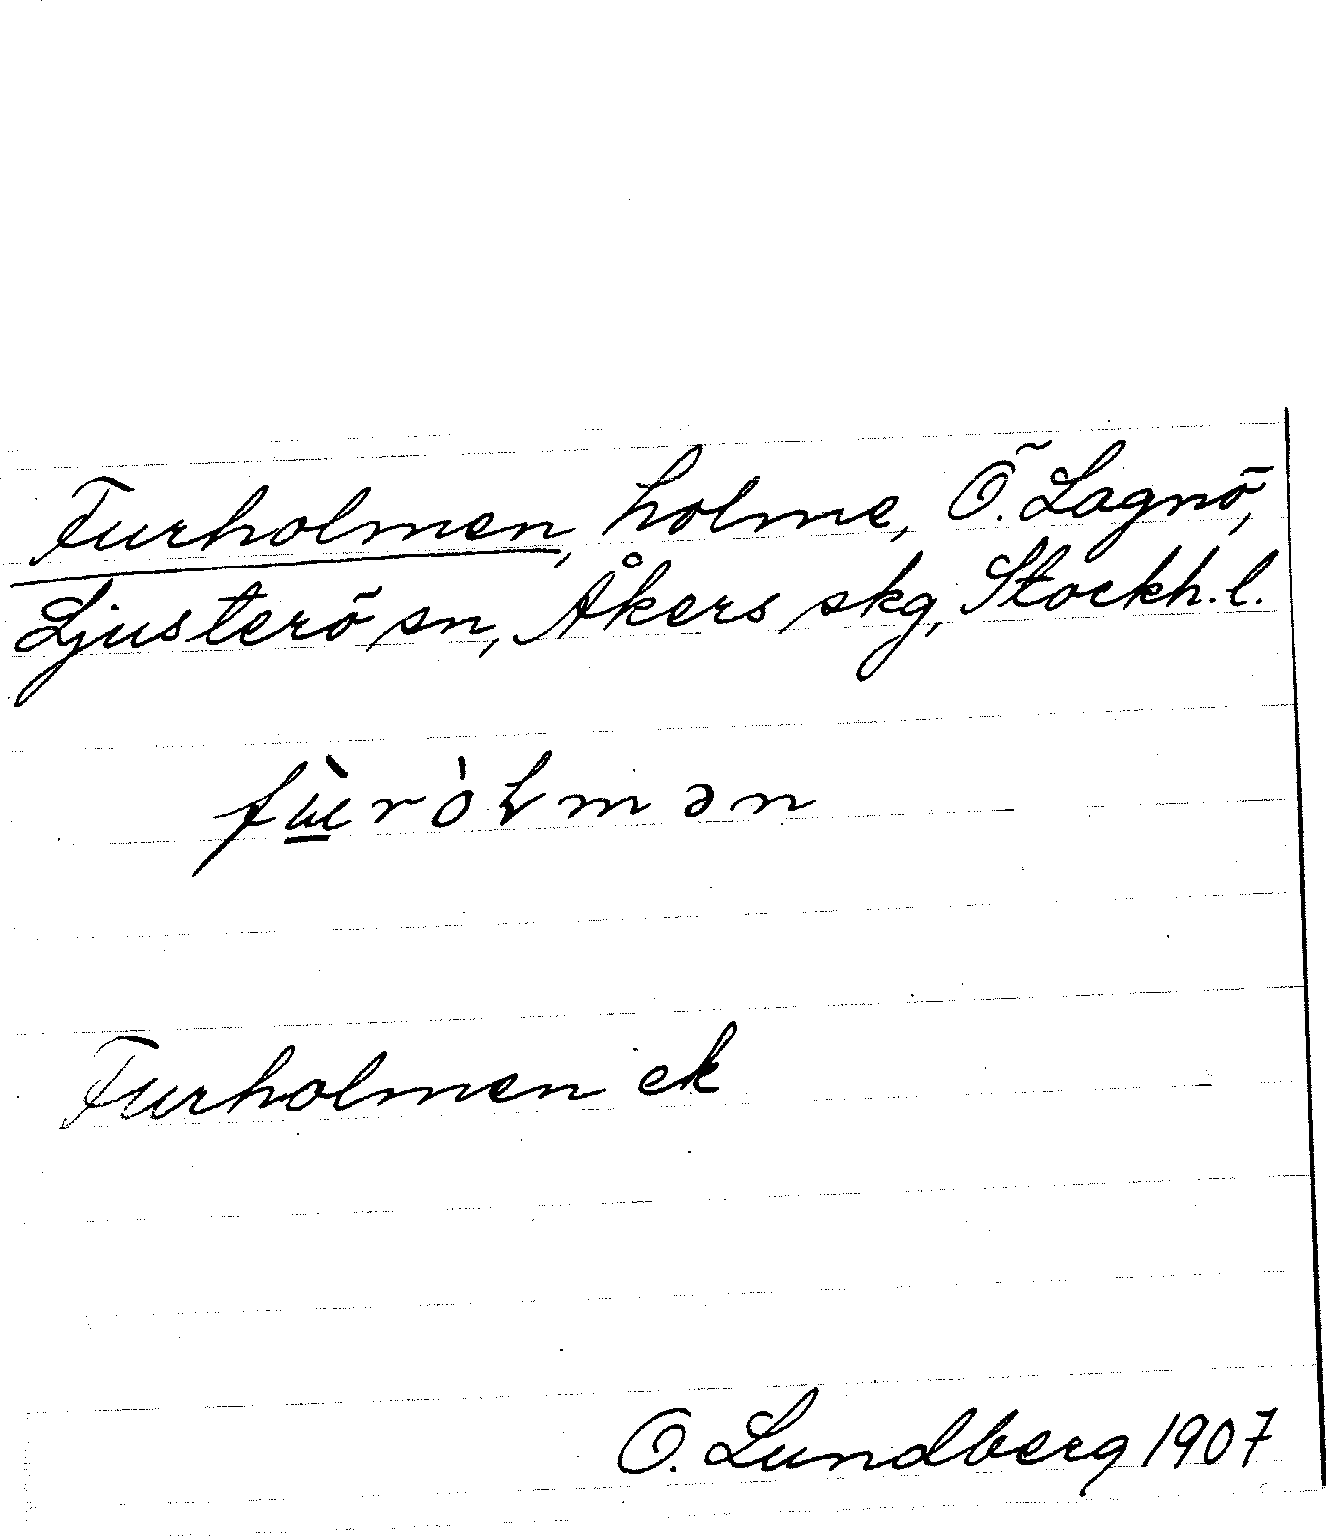 Furholmen, holme, Ö. Lagnö,
Ljusterö sn, Åkers skg, Stockh. l.
fù̲ròłmən
Furholmen ek
O. Lundberg 1907